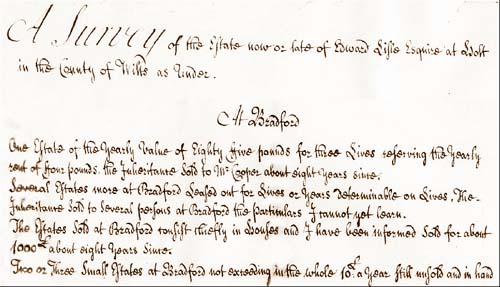 A Survey of the Estate now or late of Edward Lisle Esquire at Holt
in the County of Wilts as Under.
At Bradford
One Estate of the Yearly Value of Eighty five pounds for three Lives reserving the Yearly
rent of four pounds. the Inheritance Sold to Mr Cooper about eight Years since.
Several Estates more at Bradford Leased out for Lives or Years Determinable on Lives. The
Inheritance Sold to Several persons at Bradford the particulars I cannot yet learn.
The Estates Sold at Bradford consist chiefly in houses and I have been informed Sold for about
1000£ about eight Years Since.
Two or Three Small Estates at Bradford not exceeding in the whole 10£ a Year still unsold and in hand